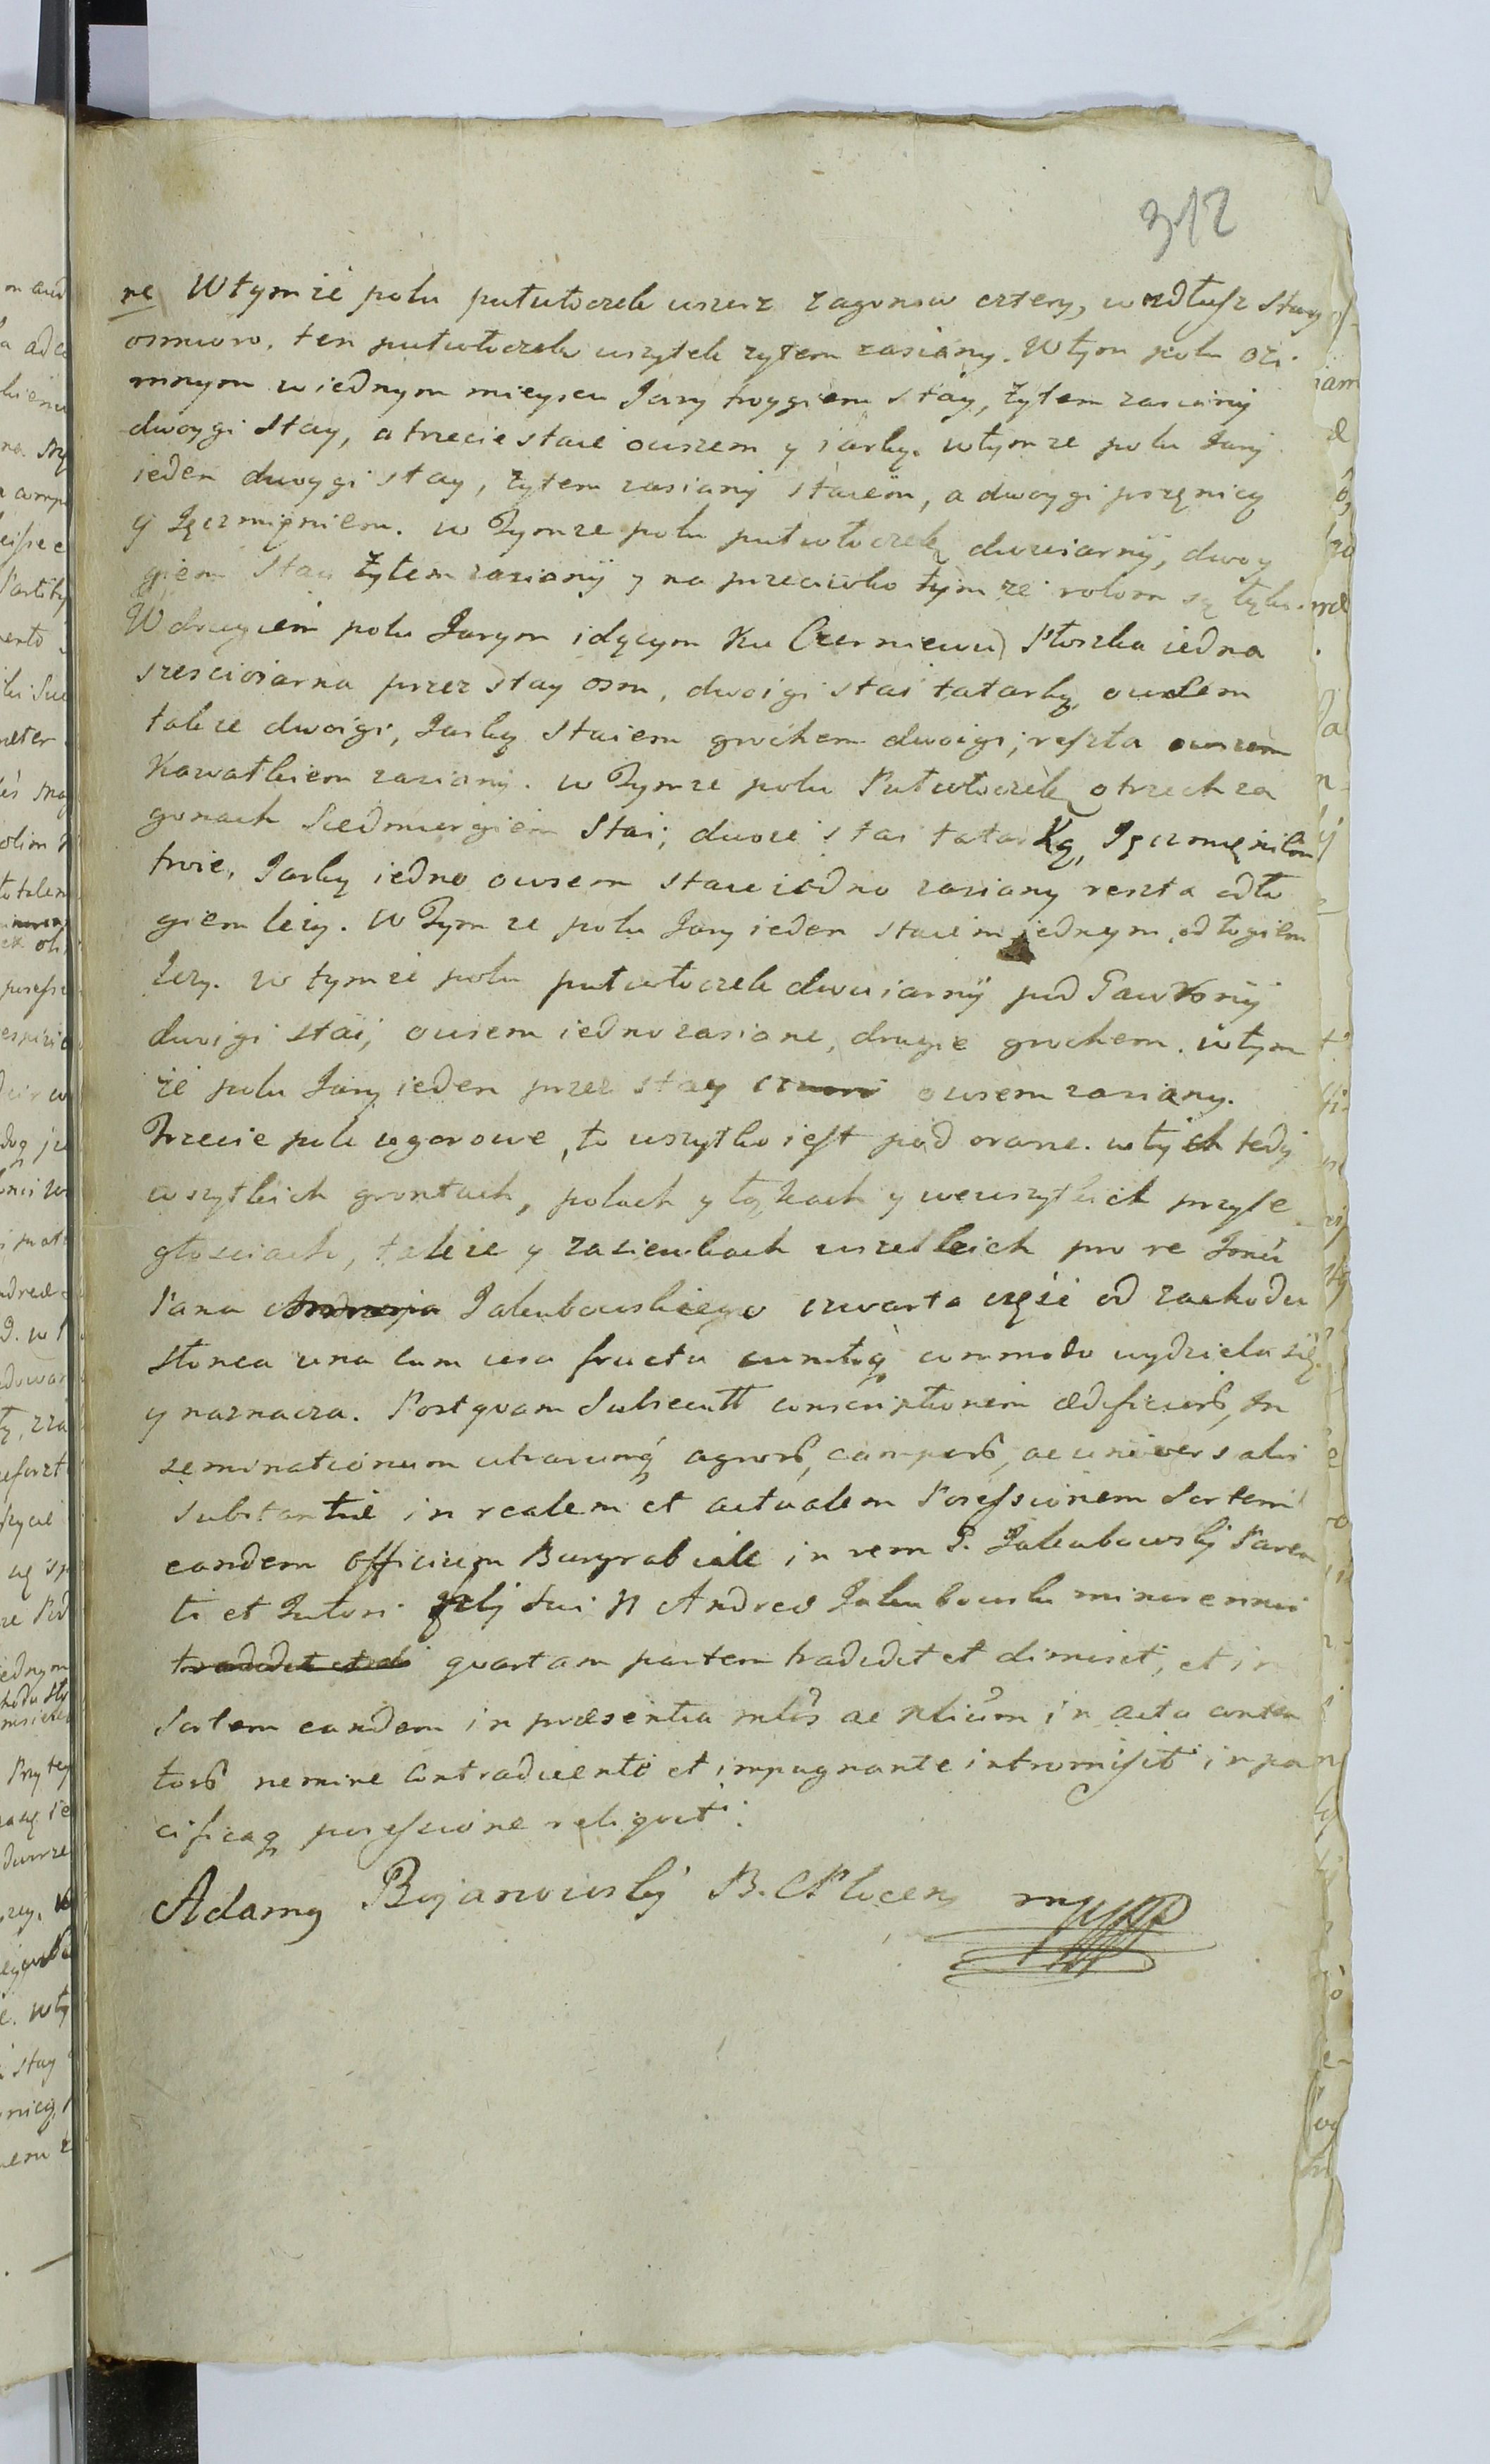 312
ne Wtymze polu putwłoczek wszerz zagonow cztery, wzdłusz stay
osmioro, ten putwłoczek wszytek zytem zasiany. Wtym polu ozi-
mnym w iednym mieyscu Jary troygiem stáy, żytem zasiany
dwoygi stay, a trzecie staie owsem y iarką. wtymze polu Jary
ieden dwoygi stay, zytem zasiany staiem, a dwoygi pszęnicą
y Jęczmięniem. w Tymze polu putwłoczek dwuiarnÿ, dwoy
giem stay Żytem zasianÿ y na przeciwko tymże rolom są łąki.
W drugiem polu Jarym idącym ku Czerniewu Płoszka iedna
szesciosiarna przez stay osm, dwoigi stai tatarką, owsem
takze dwoigi, Jarką staiem grochem dwoigi, reszta owsem
Kawałkiem zasiany. w Tymze polu Putwłoczek o trzech za
gonach siedmiorgiem stai; dwoie stai tatarką, Jęczmięniem
troie, Jarką iedno owsem staie iedno zasiany reszta odło
giem leży. W Tymze polu Jary ieden staiem iednym, odłogiem
lezy. w tymze polu putwłoczek dwuiarnÿ pod
dwoigi stai, owsem iedno zasiane, drugie grochem. wtym
że polu Jary ieden przez stay owsem zasiany.
Trzecie pole ugorowe, to wszytko iest pod orane. wtych tedy
wszytkich grontach, polach y łąkach y wewszytkich przyle
głosciach, takze y zasiewkach wszelkich pro re
Pana Andrzeja Jakubowskiego czwarta częsc od zachodu
słonca una cum usu fructu commodo wydziela się
y naznacza. Postquam conscriptionem ædificiorß, In
seminationum utrarumq agrorß, camporß, ac universalis
substantiæ in realem et actualem Possessionem Sortem
eandem officium Burgrabiale in rem G. Jakubowskj Paren
ti et Tutori filj sui N Andreæ Jakubowski minorennis
tradidit et di quartam partem tradidit et dimisit, et in
Sortem eandem in præsentia ac in actu conten
torß nemine Contradicente et impugnante intromisit inpa
cificaq possessione reliquit.
Adamg Bojanowskj B. C Plocens mpp